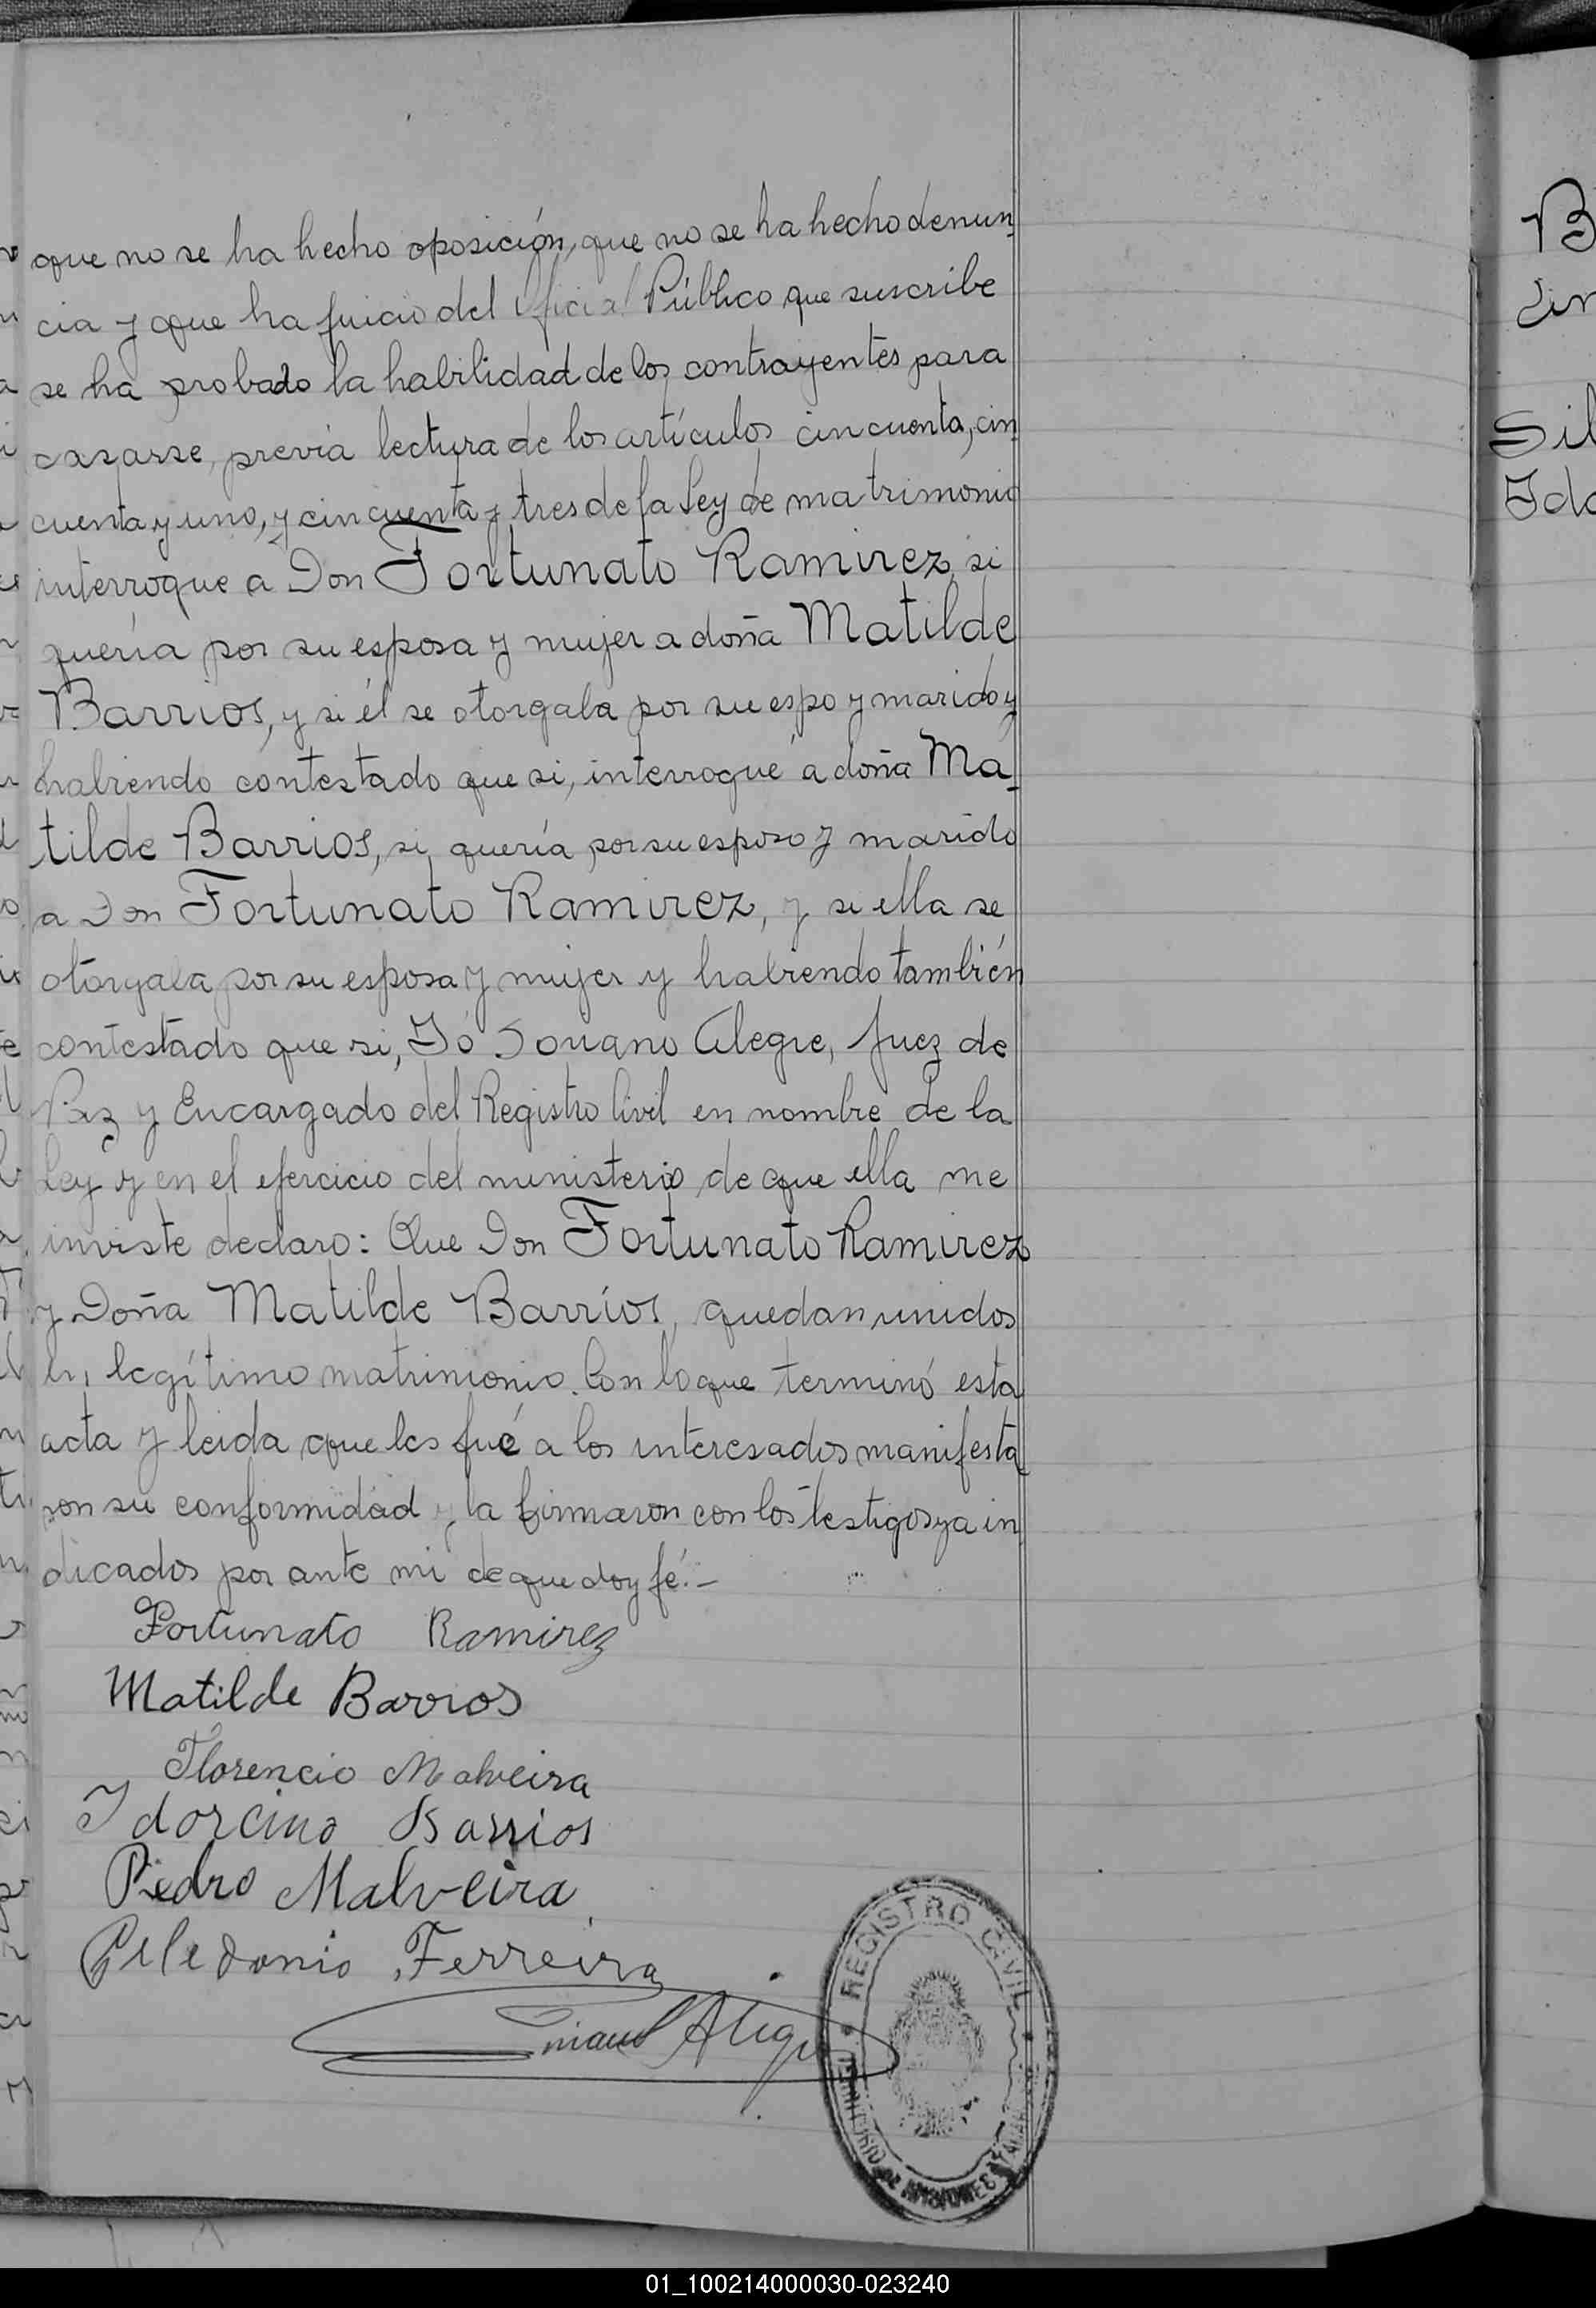 que no se ha hecho oposición, que no se ha hecho denun
cia y que ha juicio del Oficial Público que suscribe
se ha probado la habilidad de los contrayentes para
casarse, previa lectura de los artículos cincuenta, cin
cuenta y uno, y cincuenta y tres de la Ley de matrimonio
interroque a Don Fortunato Ramirez, si
quería por su esposa y mujer a doña Matilde
Barrios, y si él se otorgaba por su espo y marido y
habiendo contestado que si, interroqué a doña Ma_
tilde Barrios, si quería por su esposo y marido
a Don Fortunato Ramirez, y si ella se
otorgaba por su esposa y mujer y habiendo también
contestado que si, Yó Soriano Alegre, Juez de
Paz y Encargado del Registro Civil en nombre de la
Ley y en el ejercicio del ministerio de que ella me
inviste declaro: Que Don Fortunato Ramirez
y Doña Matilde Barrios, quedan unidos
en legítimo matrimonio. Con lo que terminó esta
acta y leida que les fué a los interesados manifesta
ron su conformidad y la firmaron con los testigos ya in
dicados por ante mí de que doy fé.-
Fortunato Ramirez
Matilde Barrios
Florencio Malveira
Idorcino Barrios
Pedro Malveira
Ferreira
REGISTRO CIVIL
TERRITORIO DE MISIONES
B
Cin
Sil
Ido
01_100214000030-023240